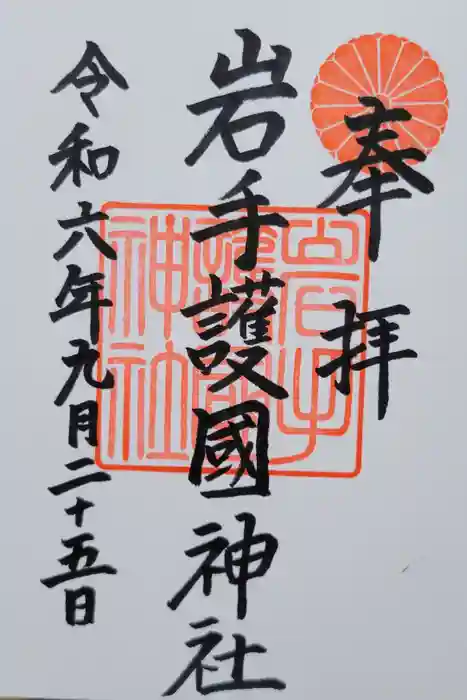 奉拝
岩手護國神社
岩手護國神社
令和六年九月二十五日